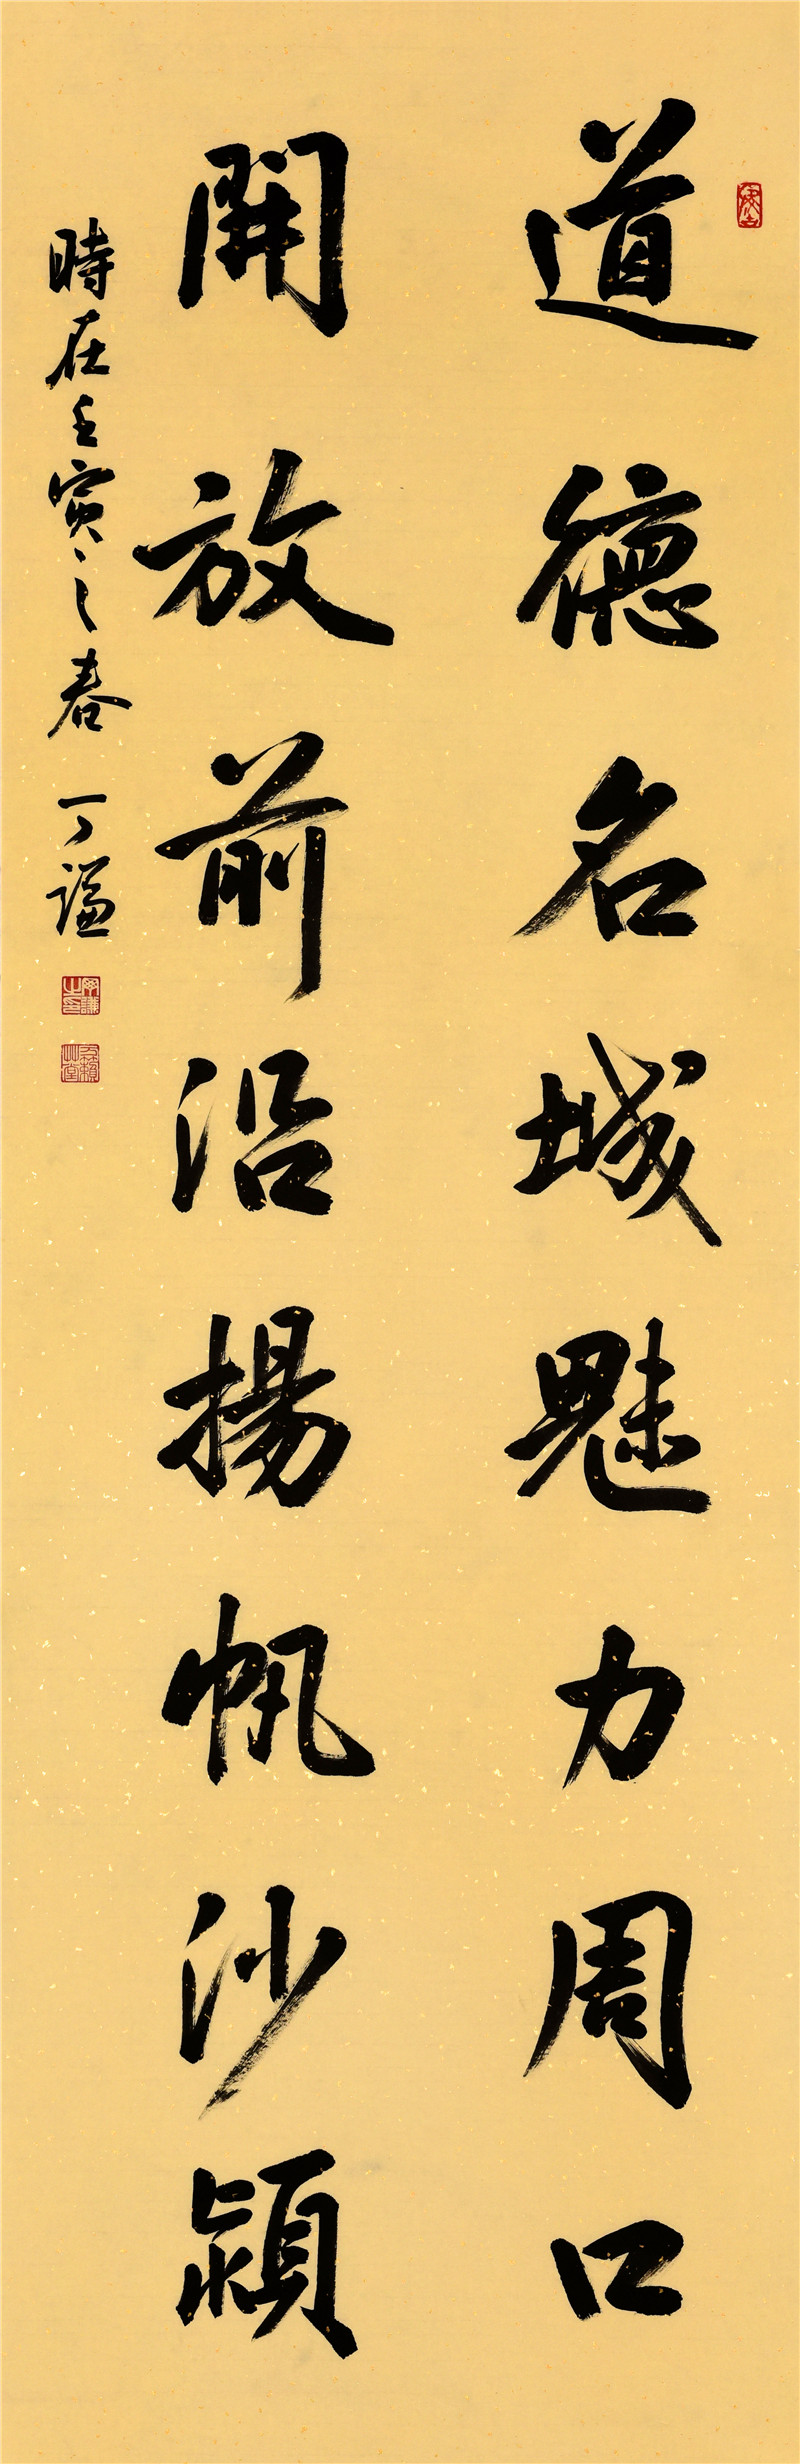 道德名城魅力周口
開放前沿揚帆沙潁
時在壬寅之春 丁谦